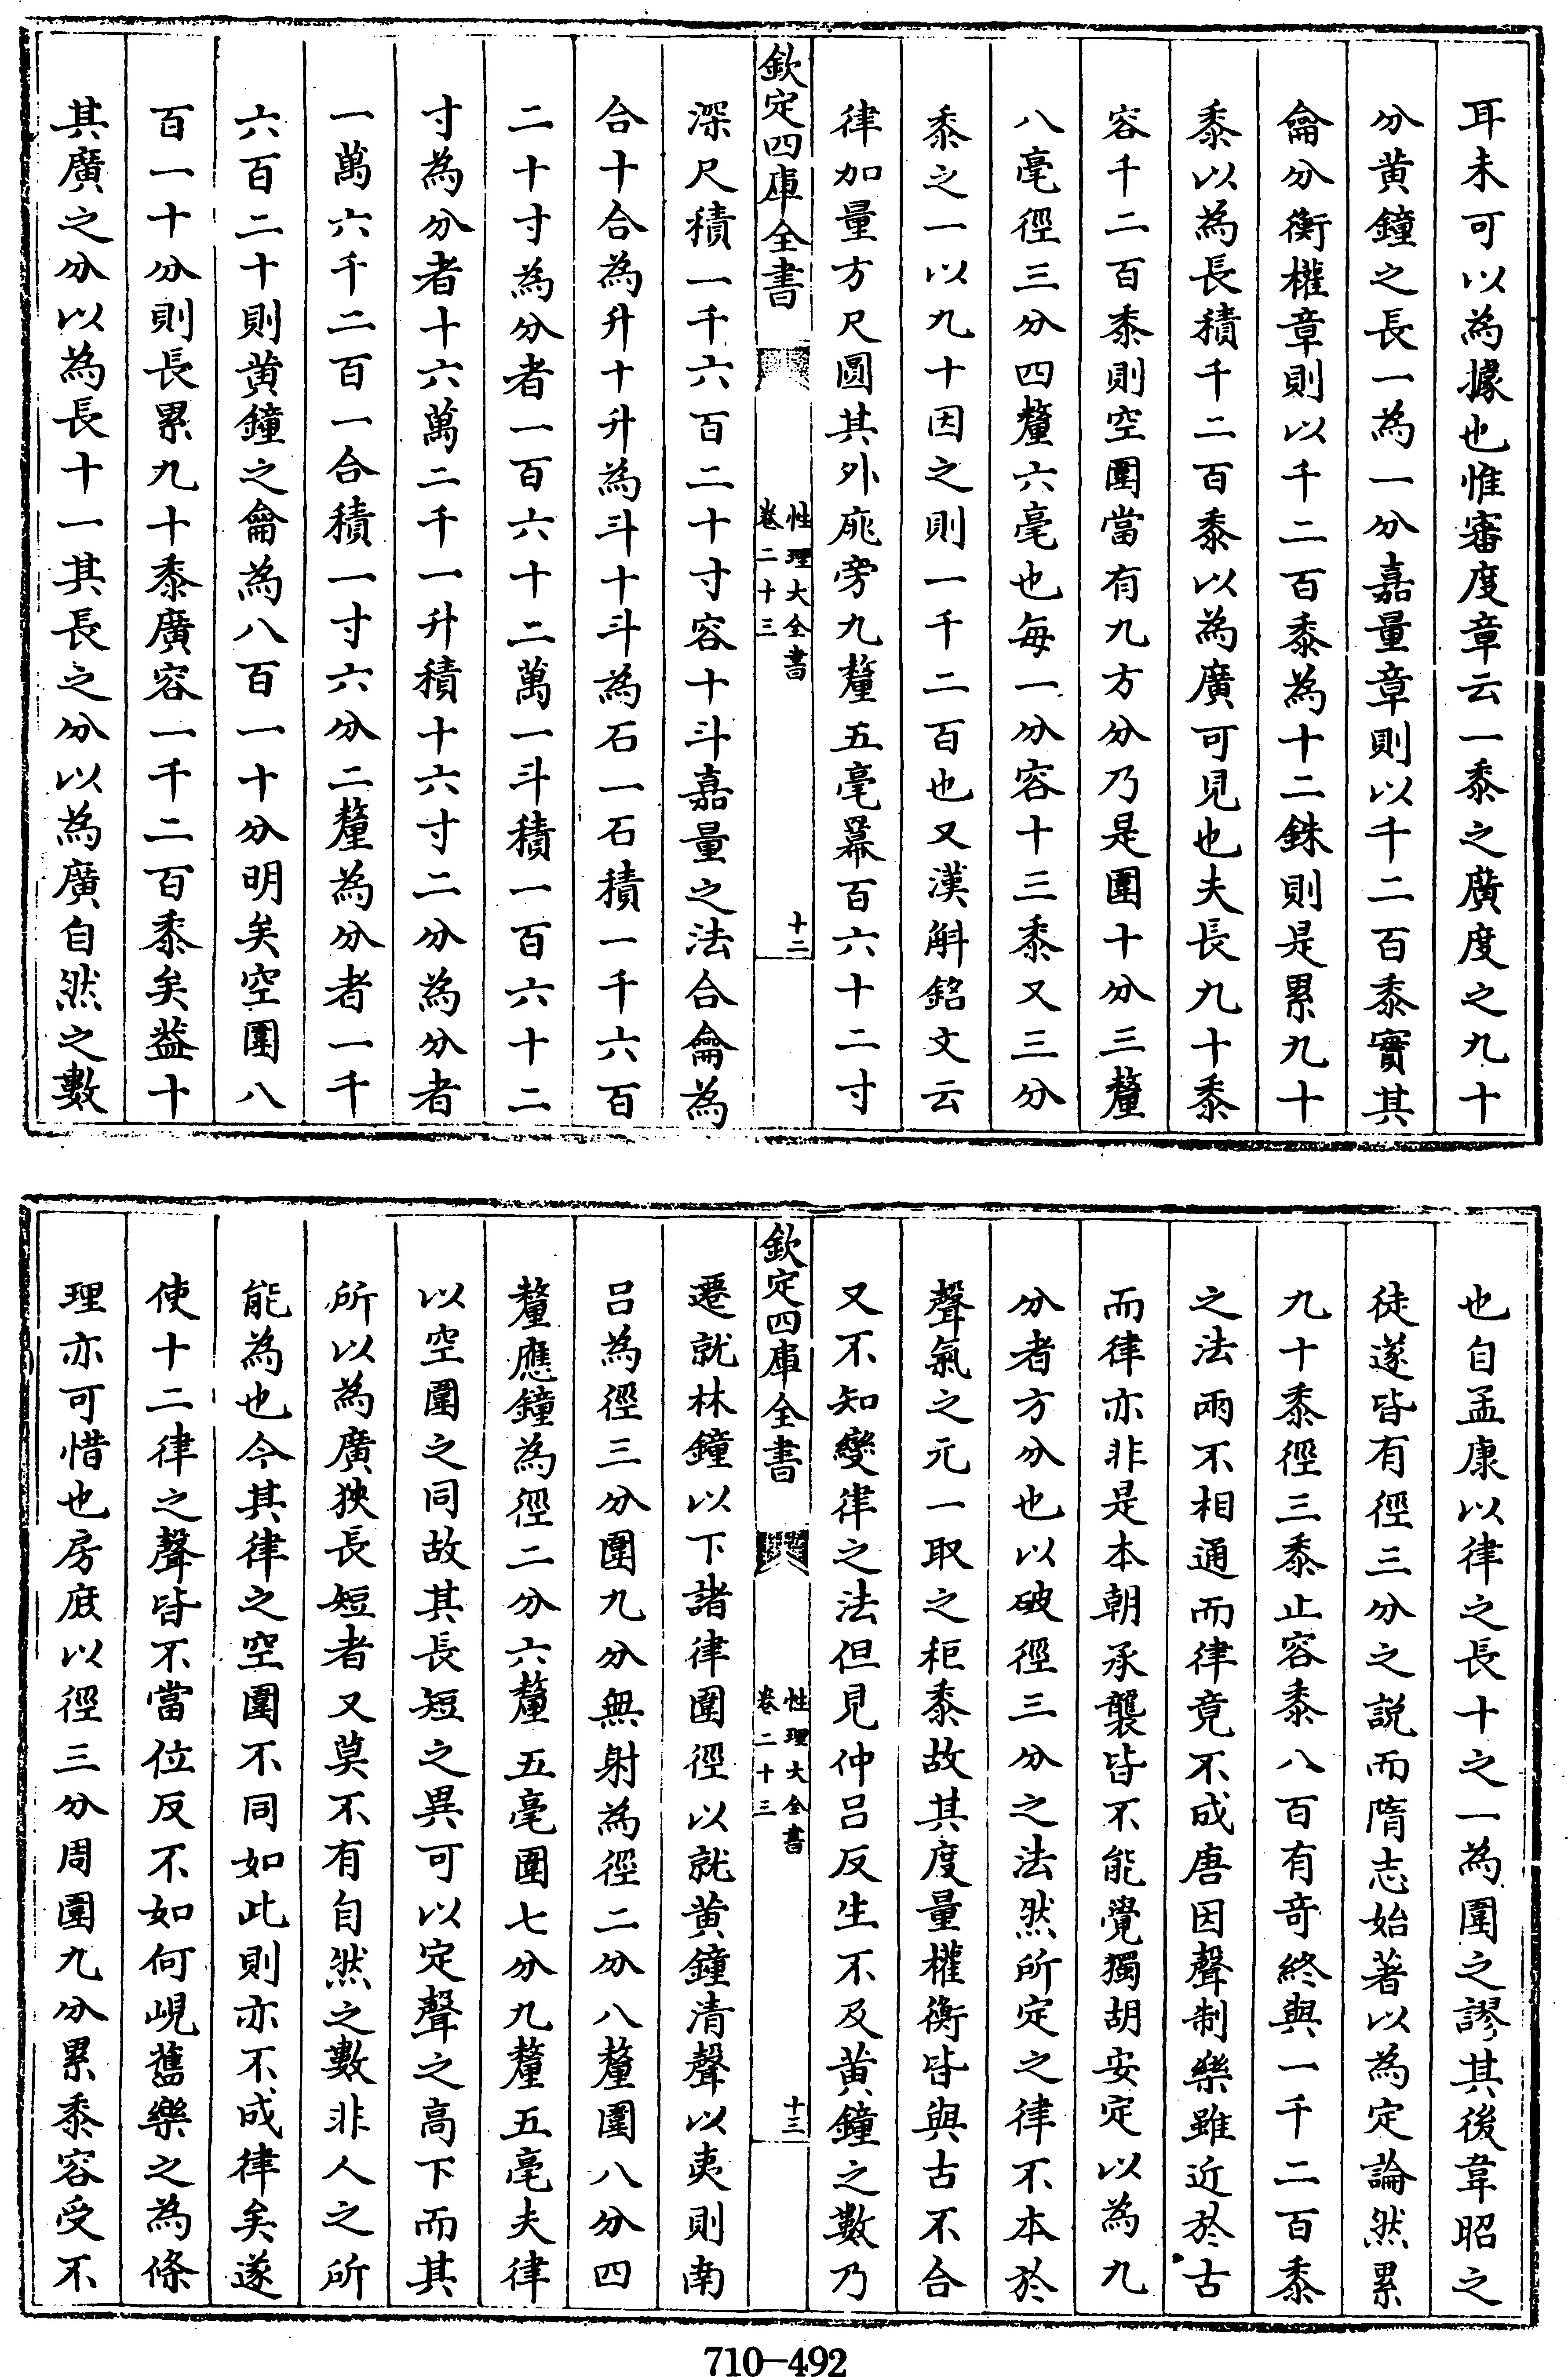 耳未可以為據也惟審度章云一黍之廣度之九十
分黄鐘之長一為一分嘉量章則以千二百黍實其
龠分衡權章則以千二百黍為十二銖則是累九十
黍以為長積千二百黍以為廣可見也夫長九十黍
容千二百黍則空圍當有九方分乃是圍十分三釐
八毫徑三分四釐六毫也每一分容十三黍又三分
黍之一以九十因之則一千二百也又漢斛銘文云
律加量方尺圓其外庣旁九釐五毫冪百六十二寸
欽定四庫全書
性理大全書
卷二十三
十二
深尺積一千六百二十寸容十斗嘉量之法合龠為
合十合為升十升為斗十斗為石一石積一千六百
二十寸為分者一百六十二萬一斗積一百六十二
寸為分者十六萬二千一升積十六寸二分為分者
一萬六千二百一合積一寸六分二釐為分者一千
六百二十則黄鐘之龠為八百一十分明矣空圍八
百一十分則長累九十黍廣容一千二百黍矣葢十
其廣之分以為長十一其長之分以為廣自然之數
也自孟康以律之長十之一為圍之謬其後韋昭之
徒遂皆有徑三分之説而隋志始著以為定論然累
九十黍徑三黍止容黍八百有奇終與一千二百黍
之法兩不相通而律竟不成唐因聲制樂雖近於古
而律亦非是本朝承襲皆不能覺獨胡安定以為九
分者方分也以破徑三分之法然所定之律不本於
聲氣之元一取之秬黍故其度量權衡皆與古不合
又不知變律之法但見仲呂反生不及黄鐘之數乃
欽定四庫全書
性理大全書
卷二十三
十三
遷就林鐘以下諸律圍徑以就黄鐘清聲以夷則南
呂為徑三分圍九分無射為徑二分八釐圍八分四
釐應鐘為徑二分六釐五毫圍七分九釐五毫夫律
以空圍之同故其長短之異可以定聲之高下而其
所以為廣狹長短者又莫不有自然之數非人之所
能為也今其律之空圍不同如此則亦不成律矣遂
使十二律之聲皆不當位反不如何峴舊樂之為條
理亦可惜也房庶以徑三分周圍九分累黍容受不
710-492